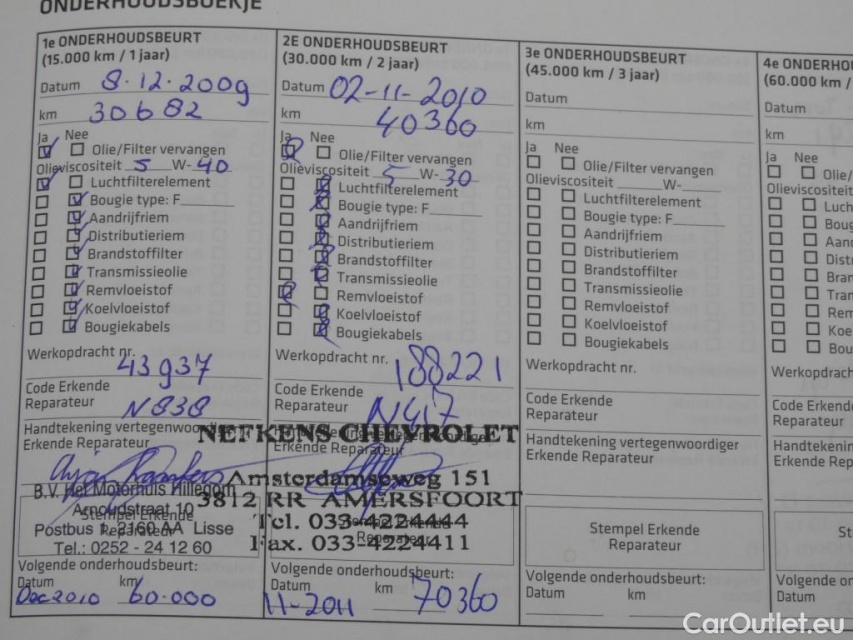 ONDERHOUDSBOEKJE
1e ONDERHOUDSBEURT
(15.000 km / 1 jaar)
Datum 8.12.2009
km 30682
Ja Nee
Olie/Filter vervangen
Olieviscositeit 5 W- 40
Luchtfilterelement
Bougie type: F
Aandrijfriem
Distributieriem
Brandstoffilter
Transmissieolie
Remvloeistof
Koelvloeistof
Bougiekabels
Werkopdracht nr.
43937
Code Erkende
Reparateur N838
Handtekening vertegenwoordiger
Erkende Reparateur
B.V. Het Motorhuis Hillegom
Arnoudstraat 10
Stempel Erkende
Reparateur
Postbus 1, 2160 AA Lisse
Tel.: 0252 - 24 12 60
Volgende onderhoudsbeurt:
Datum km
Dec 2010 60.000
2E ONDERHOUDSBEURT
(30.000 km / 2 jaar)
Datum 02-11-2010
km 40360
Ja Nee
Olie/Filter vervangen
Olieviscositeit 5 W- 30
Luchtfilterelement
Bougie type: F
Aandrijfriem
Distributieriem
Brandstoffilter
Transmissieolie
Remvloeistof
Koelvloeistof
Bougiekabels
Werkopdracht nr. 188221
Code Erkende
Reparateur N417
Handtekening vertegenwoordiger
Erkende Reparateur
NEFKENS CHEVROLET
Amsterdamseweg 151
3812 RR AMERSFOORT
Tel. 033-4224444
Stempel Erkende
Reparateur
Fax. 033-4224411
Volgende onderhoudsbeurt:
Datum km
11-2011 70360
3e ONDERHOUDSBEURT
(45.000 km / 3 jaar)
Datum
km
Ja Nee
Olie/Filter vervangen
Olieviscositeit W-
Luchtfilterelement
Bougie type: F
Aandrijfriem
Distributieriem
Brandstoffilter
Transmissieolie
Remvloeistof
Koelvloeistof
Bougiekabels
Werkopdracht nr.
Code Erkende
Reparateur
Handtekening vertegenwoordiger
Erkende Reparateur
Stempel Erkende
Reparateur
Volgende onderhoudsbeurt:
Datum km
4e ONDERHOU
(60.000 km /
Datum
km
Ja Nee
Olie/
Olieviscositeit
Luch
Boug
Aand
Dist
Bran
Tran
Rem
Koe
Bou
Werkopdrach
Code Erkend
Reparateur
Handtekenin
Erkende Rep
Volgende on
Datum
CarOutlet.eu